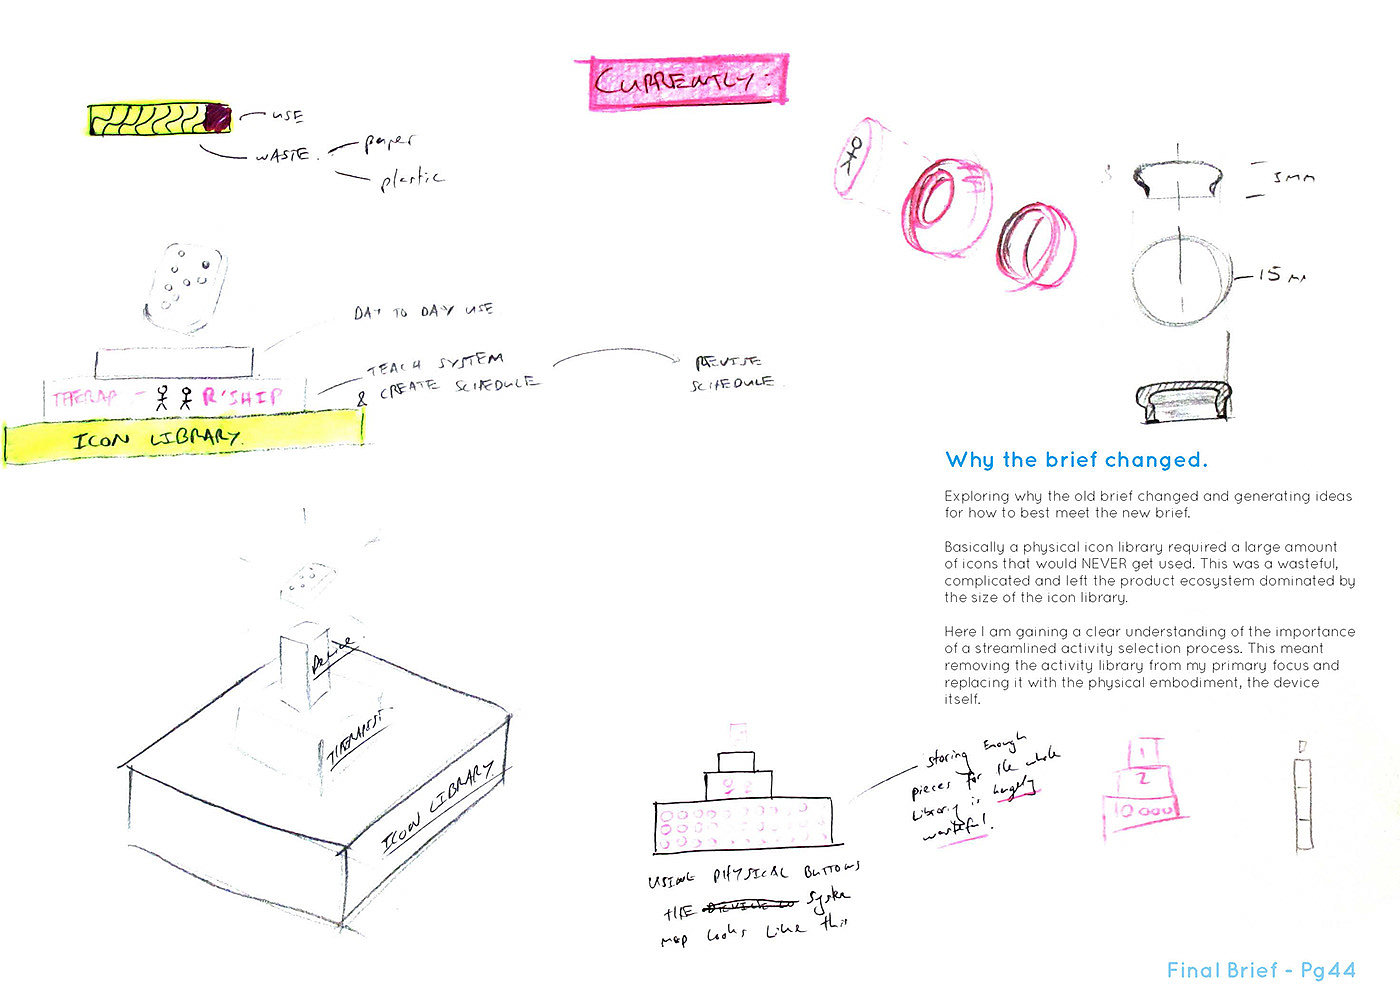 CURRENTLY:
USE
WASTE.
paper
plastic
5mm
15m
DAY TO DAY USE
TEACH SYSTEM
& CREATE SCHEDULE
REVISE
SCHEDULE.
THERAP - R'SHIP
ICON LIBRARY.
Why the brief changed.
Exploring why the old brief changed and generating ideas
for how to best meet the new brief.
Basically a physical icon library required a large amount
of icons that would NEVER get used. This was a wasteful,
complicated and left the product ecosystem dominated by
the size of the icon library.
Here I am gaining a clear understanding of the importance
of a streamlined activity selection process. This meant
removing the activity library from my primary focus and
replacing it with the physical embodiment, the device
itself.
Device
THERAPIST
ICON LIBRARY
storing Enough
pieces for the whole
Library is hugely
wasteful.
1
2
10 000
USING PHYSICAL BUTTONS
THE System
map looks like this
Final Brief - Pg44